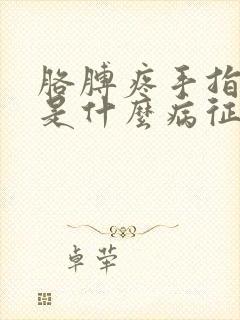 胳膊疼手指
是什麼病征
卓荦